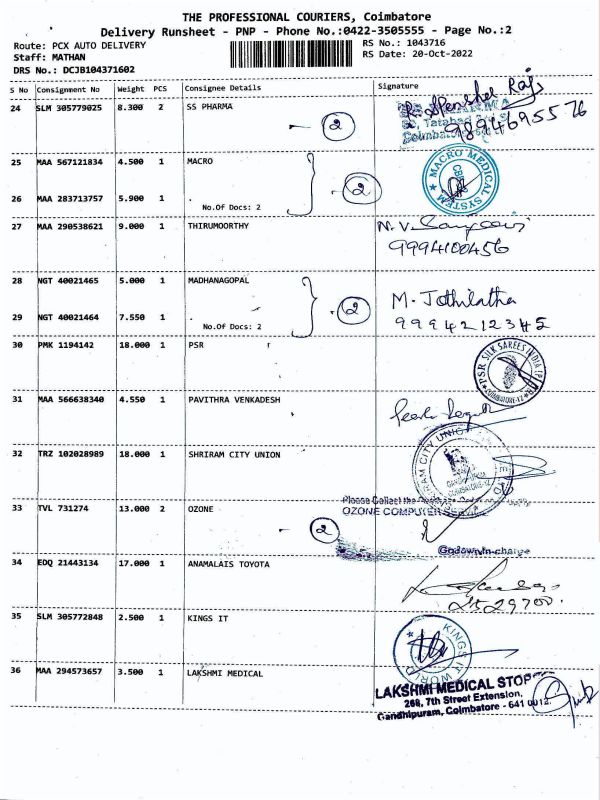 THE PROFESSIONAL COURIERS, Coimbatore
Delivery Runsheet - PNP - Phone No.:0422-3505555 - Page No.:2
Route: PCX AUTO DELIVERY RS No.: 1043716
Staff: MATHAN RS Date: 20-Oct-2022
DRS No.: DCJB104371602
S No Consignment No Weight PCS Consignee Details Signature
24 SLM 305779025 8.300 2 SS PHARMA
- 2
9894695576
25 MAA 567121834 4.500 1 MACRO
MACRO MEDICAL SYSTEM
CBE
- 2
26 MAA 283713757 5.900 1 .
No.Of Docs: 2
27 MAA 290538621 9.000 1 THIRUMOORTHY
9994100456
28 NGT 40021465 5.000 1 MADHANAGOPAL
M. Jothilatha
- 2
29 NGT 40021464 7.550 1 . 9994212345
No.Of Docs: 2
30 PMK 1194142 18.000 1 PSR
PSR SILK SAREES INDIA
COIMBATORE-12
31 MAA 566638340 4.550 1 PAVITHRA VENKADESH
32 TRZ 102028989 18.000 1 SHRIRAM CITY UNION
RAM CITY UNION
33 TVL 731274 13.000 2 OZONE
Please Collect the
OZONE COMPUTER
- 2
Godown In-charge
34 EDQ 21443134 17.000 1 ANAMALAIS TOYOTA
2529700.
35 SLM 305772848 2.500 1 KINGS IT
KINGS IT WORLD
36 MAA 294573657 3.500 1 LAKSHMI MEDICAL
LAKSHMI MEDICAL STOP
268, 7th Street Extension,
Gandhipuram, Coimbatore - 641 012.